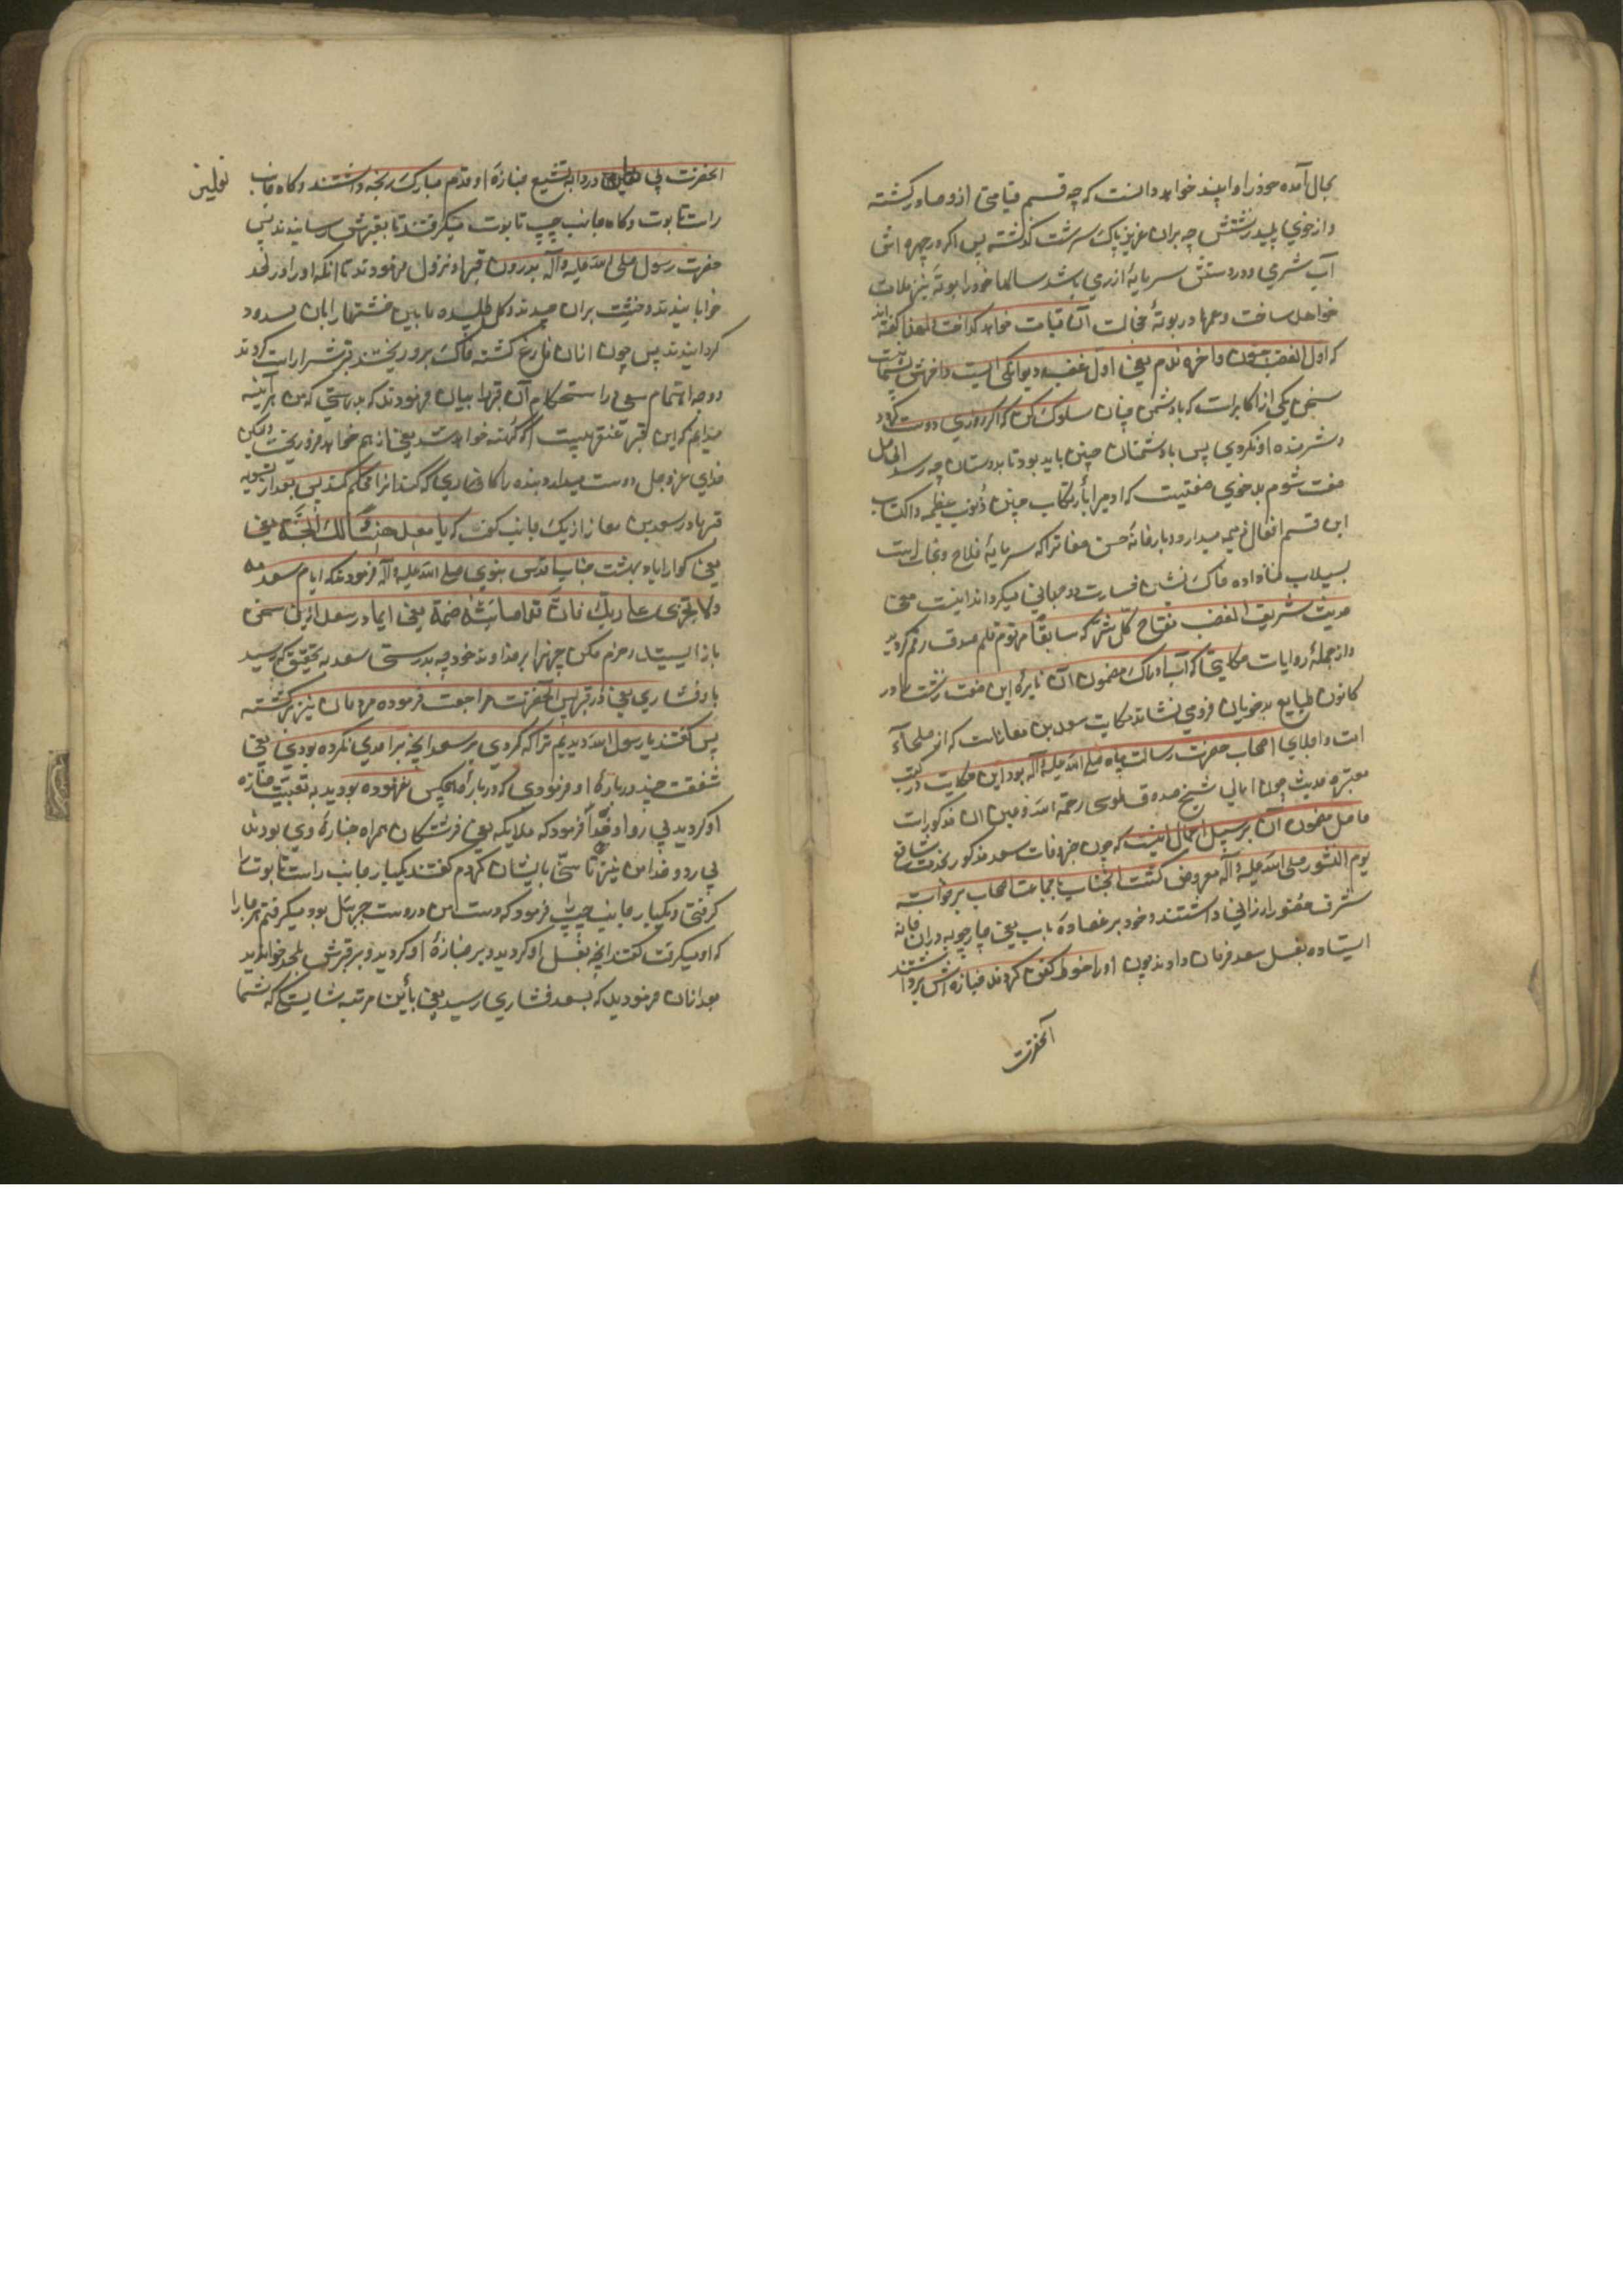 بحال آمده خود را و اپسند خواهد دانست که چه قسم قیامتی ازو صادر کشته
و از خوی پلید زشتش چه بران عزیز پاک سرشت کذشته پس اکر در چهره اش
آب شرمی و در دستش سرمایهٔ ازرمی باشد سالها خود را بوتهٔ تیر ملامت
خواهد ساخت و عمرها در بوتهٔ خجالت آن قیامت خواهد کداخت لهذا کفته اند
که اول الغضب جنون و اخره ندم یعنی اول غضب دیوانکی است و اخرش پشیمانیست
سخن یکی از اکابر است که با دشمن چنان سلوک کن که اکر روزی دوست کردد
شرمنده او نکردی پس با دشمنان چنین باید بود تا بدوستان چه رسد الحاصل
صفت شوم بدخوی صفتیست که ادمی را بارتکاب چنین ذنوب عظیمه و اکتساب
این قسم افعال ذمیمه میدارد و بارخانهٔ حسن صفاتراکه سرمایهٔ فلاح و نجاتست
بسیلاب فنا داده خاک نشین خسارت دو جهانی میکرداند اینست معنی
حدیث شریف الغضب مفتاح کل شر که سابقا مرقوم قلم صدق رقم کردید
و از جملهٔ روایات حکایتی که آب ادراک مضمون آن نایرهٔ این صفت زشت را در
کانون طبایع بدخویان فرومی نشاند حکایت سعد بن معاذ است که از صلحاء
امت و اجلای اصحاب حضرت رسالت پناه صلی الله علیه و آله بود این حکایت در کتب
معتبره حدیث چون امالی شیخ صدوق طوسی رحمة الله و غیر ان مذکور است
حاصل مضمون آن بر سبیل اجمال اینست که چون خبر وفات سعد مذکور بخدمت شافع
یوم النشور صلی الله علیه و آله معروض کشت آنجناب با جماعت اصحاب برخواسته
شرف حضور ارزانی داشتند و خود بر عضادهٔ باب یعنی چارچوبه دران خانه
ایستاده بغسل سعد فرمان دادند چون او را حنوط کفن کردند جنازه اش برداشتند
آنحضرت
آنحضرت بی نعلین و ردا به تشییع جنازهٔ او قدم مبارک رنجه داشتند و کاه جانب
نعلین
راست تابوت و کاه جانب چپ تابوت میکرفتند تا بقبرش رسانیدند پس
حضرت رسول صلی الله علیه و آله بدرون قبر او نزول فرمودند تا انکه او را در لحد
خوابانیدند و خشت بران چیدند و کل طلبیده مابین خشتها را بان مسدود
کردانیدند پس چون ازان فارغ کشته خاک برو ریختند قبرش را راست کردند
و وجه اهتمام سعی در استحکام آن قبر را بیان فرمودند که بدرستی که من هرآینه
میدانم که این قبر عنقریبست که کهنه خواهد شد یعنی از هم خواهد فرو ریخت ولیکن
خدای عزوجل دوست میدارد بنده را که کاری که کند انرا محکم کند پس بعد از تسویه
قبر مادر سعد بن معاذ از یک جانب کفت که یا سعد هنیئا لک الجنة یعنی
یعنی کوارا باد بهشت جناب اقدس نبوی صلی الله علیه و آله فرمودند که ایام سعد مه
و لا تجزمی علی ربک فان سعدا اصابته ضمة یعنی ایمادر سعد ازین سخن
باز ایست و جزم مکن چیزیرا بر خداوند خود چه بدرستی سعد به تحقیق که رسید
باو فشاری یعنی در قبر پس آنحضرت مراجعت فرموده مردمان نیز برکشته
پس کفتند یا رسول الله دیدیم ترا که کردی بر سعد انچه بر احدی نکرده بودی یعنی
شفقت چند دربارهٔ او فرمودی که در باره هیچکس نفرموده بودید به تعقیب جنازه
او کردید بی ردا و فرمود که ملایکه یعنی فرشتکان همراه جنازهٔ وی بودند
بی ردا و من نیز تاسی بایشان کردم کفتند یکبار جانب راست تابوت را
کرفتی و یکبار جانب چپ را فرمود که دست من در دست جبرییل بود میکرفتم هر جا را
که او میکرفت کفتند انچه بغسل او کردید و بر جنازهٔ او کردید و بر قبرش بلحد خوابانید
بعد ازان فرمودید که بسعد فشاری رسید یعنی باین مرتبه شایستکی که شما